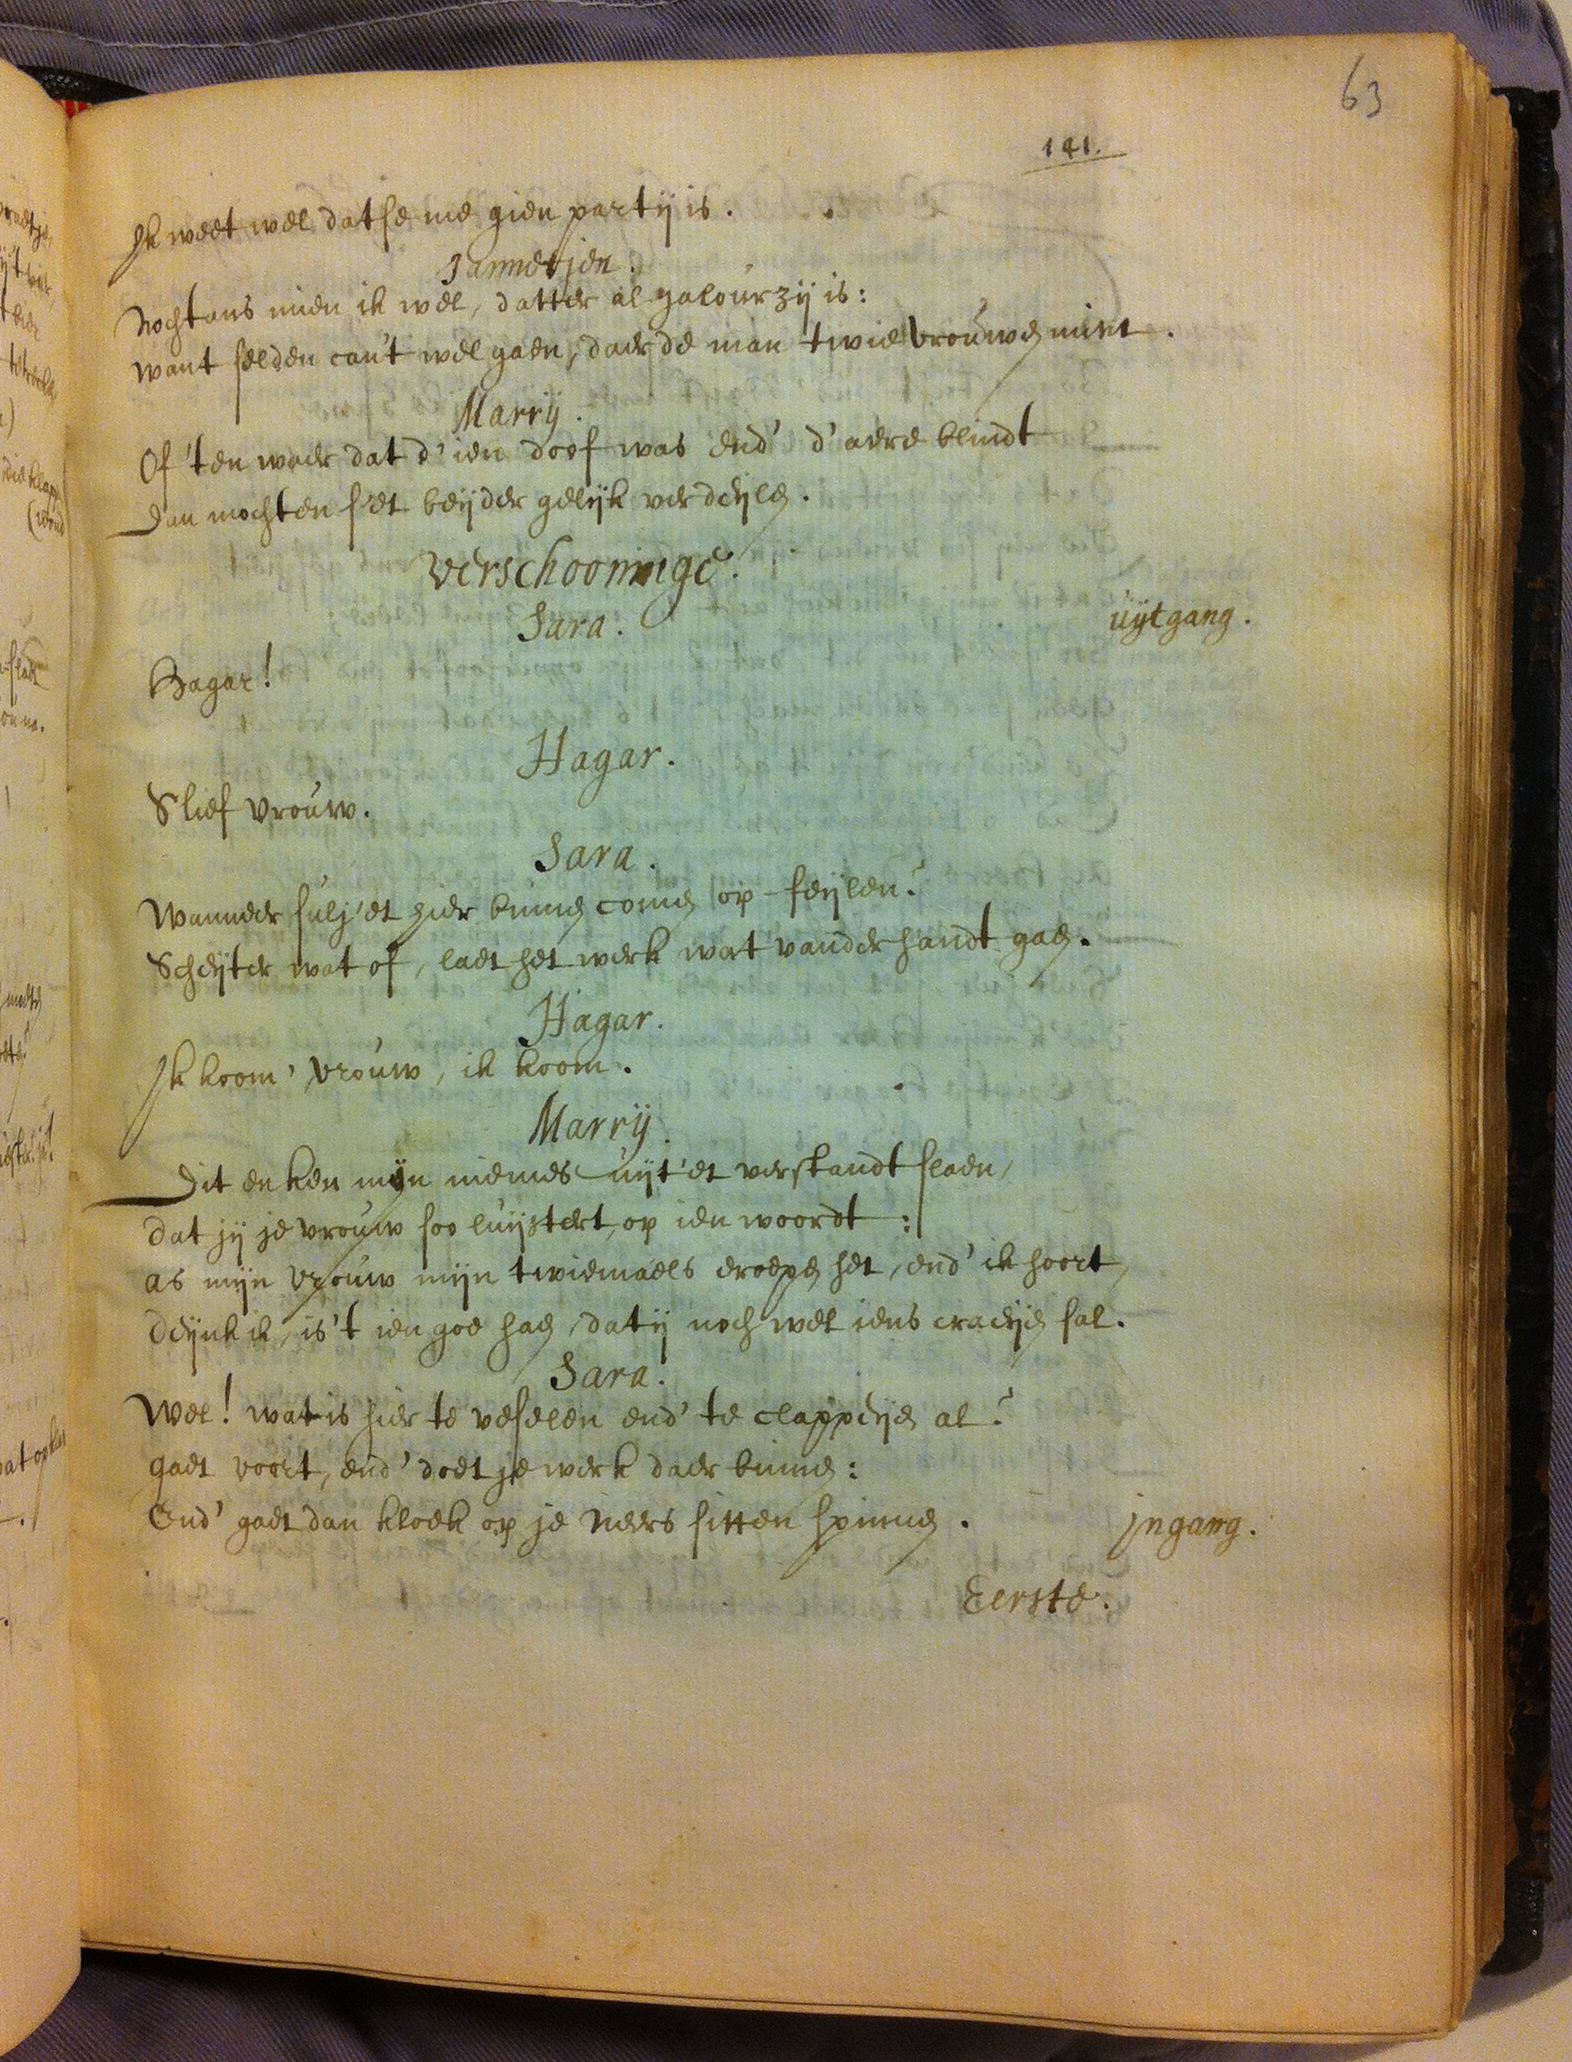 63
141.
Ik weet wel datse me gien partij is.
Jannetjen.
Nochtans mien ik wel, datter al galourzij is:
Want selden can't wel gaen, daer de man twie vrouwen mint.
Marrij.
Of 'ten waer dat d' ien doof was end' d' aere blindt
Dan mochten s'et beijder gelijk verdeijlen.
Verschooninge.
Sara.
uijtgang.
Hagar!
Hagar.
S lief vrouw.
Sara.
Wanneer sulj'et hier binnen comen op-seijlen?
Scheijter wat of, laet het werk wat vander handt gaen.
Hagar.
Ik koom' vrouw, ik koom.
Marrij.
Dit en ken mijn niemes uijt'et verstandt slaen,
dat jij je vrouw soo luijstert, op ien woordt:
as mijn vrouw mijn twiemaels eroepen het, end' ik hoort,
deijnk ik, is't ien goe haen, datij noch wel iens craeijen sal.
Sara.
Wel! wat is hier te veselen end' te clappeijen al?
gaet voort, end' doet je werk daer binnen:
End' gaet dan kloek op je neers sitten spinnen.
jngang.
Eerste.